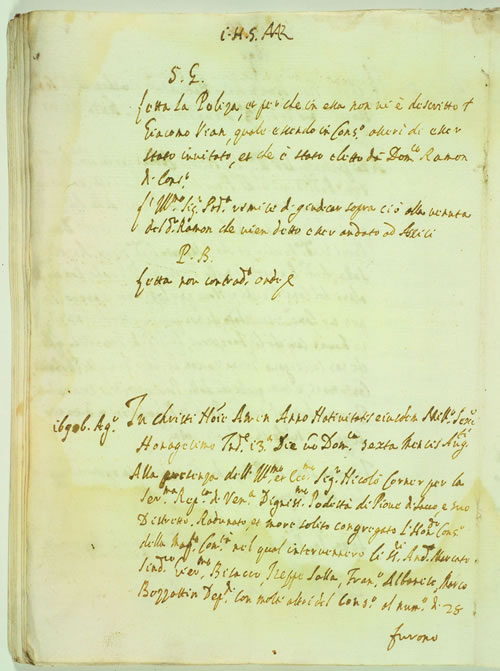 S. G.
fetta la Poliza, et perche in essa non vi è descritto
Giacomo Vian, quale essendo in Cons.o asserì di esser
stato invitato, et che è stato eletto da Dom.co Ramon
di Cons.o
l'Ill.mo Sig.r Pod.à rimise di giudicar sopra ciò alla venuta
del d.o Ramon che vien detto esser andato ad
P. B.
fetta non contrad.e onde
1690 6. Ag.o In Christi No͠ie Amen Anno Nativitatis eiusdem Mill.o Sexc.
Nonagesimo Ind.e 13.a Die v͠o Dom.ca sexta Mensis Aug.sti
Alla presenza dell'Ill.mo et Ecc.mo Sig.r Nicolò Corner per la
Ser.ma Rep.ca di Ven.a Digniss.mo Podestà di Pione di Sacco, e suo
Distretto. Radunato, et more solito congregato l'Hon.do Cons.o
della Mag.ca Com.tà nel qual intervennero li And.a Mercato
Sind.co Bilacco, Iseppo Salla, Fran.o Albanese, Marco
Bozzattin Dep.ti con molti altri del Cons.o al num.o di 28
furono